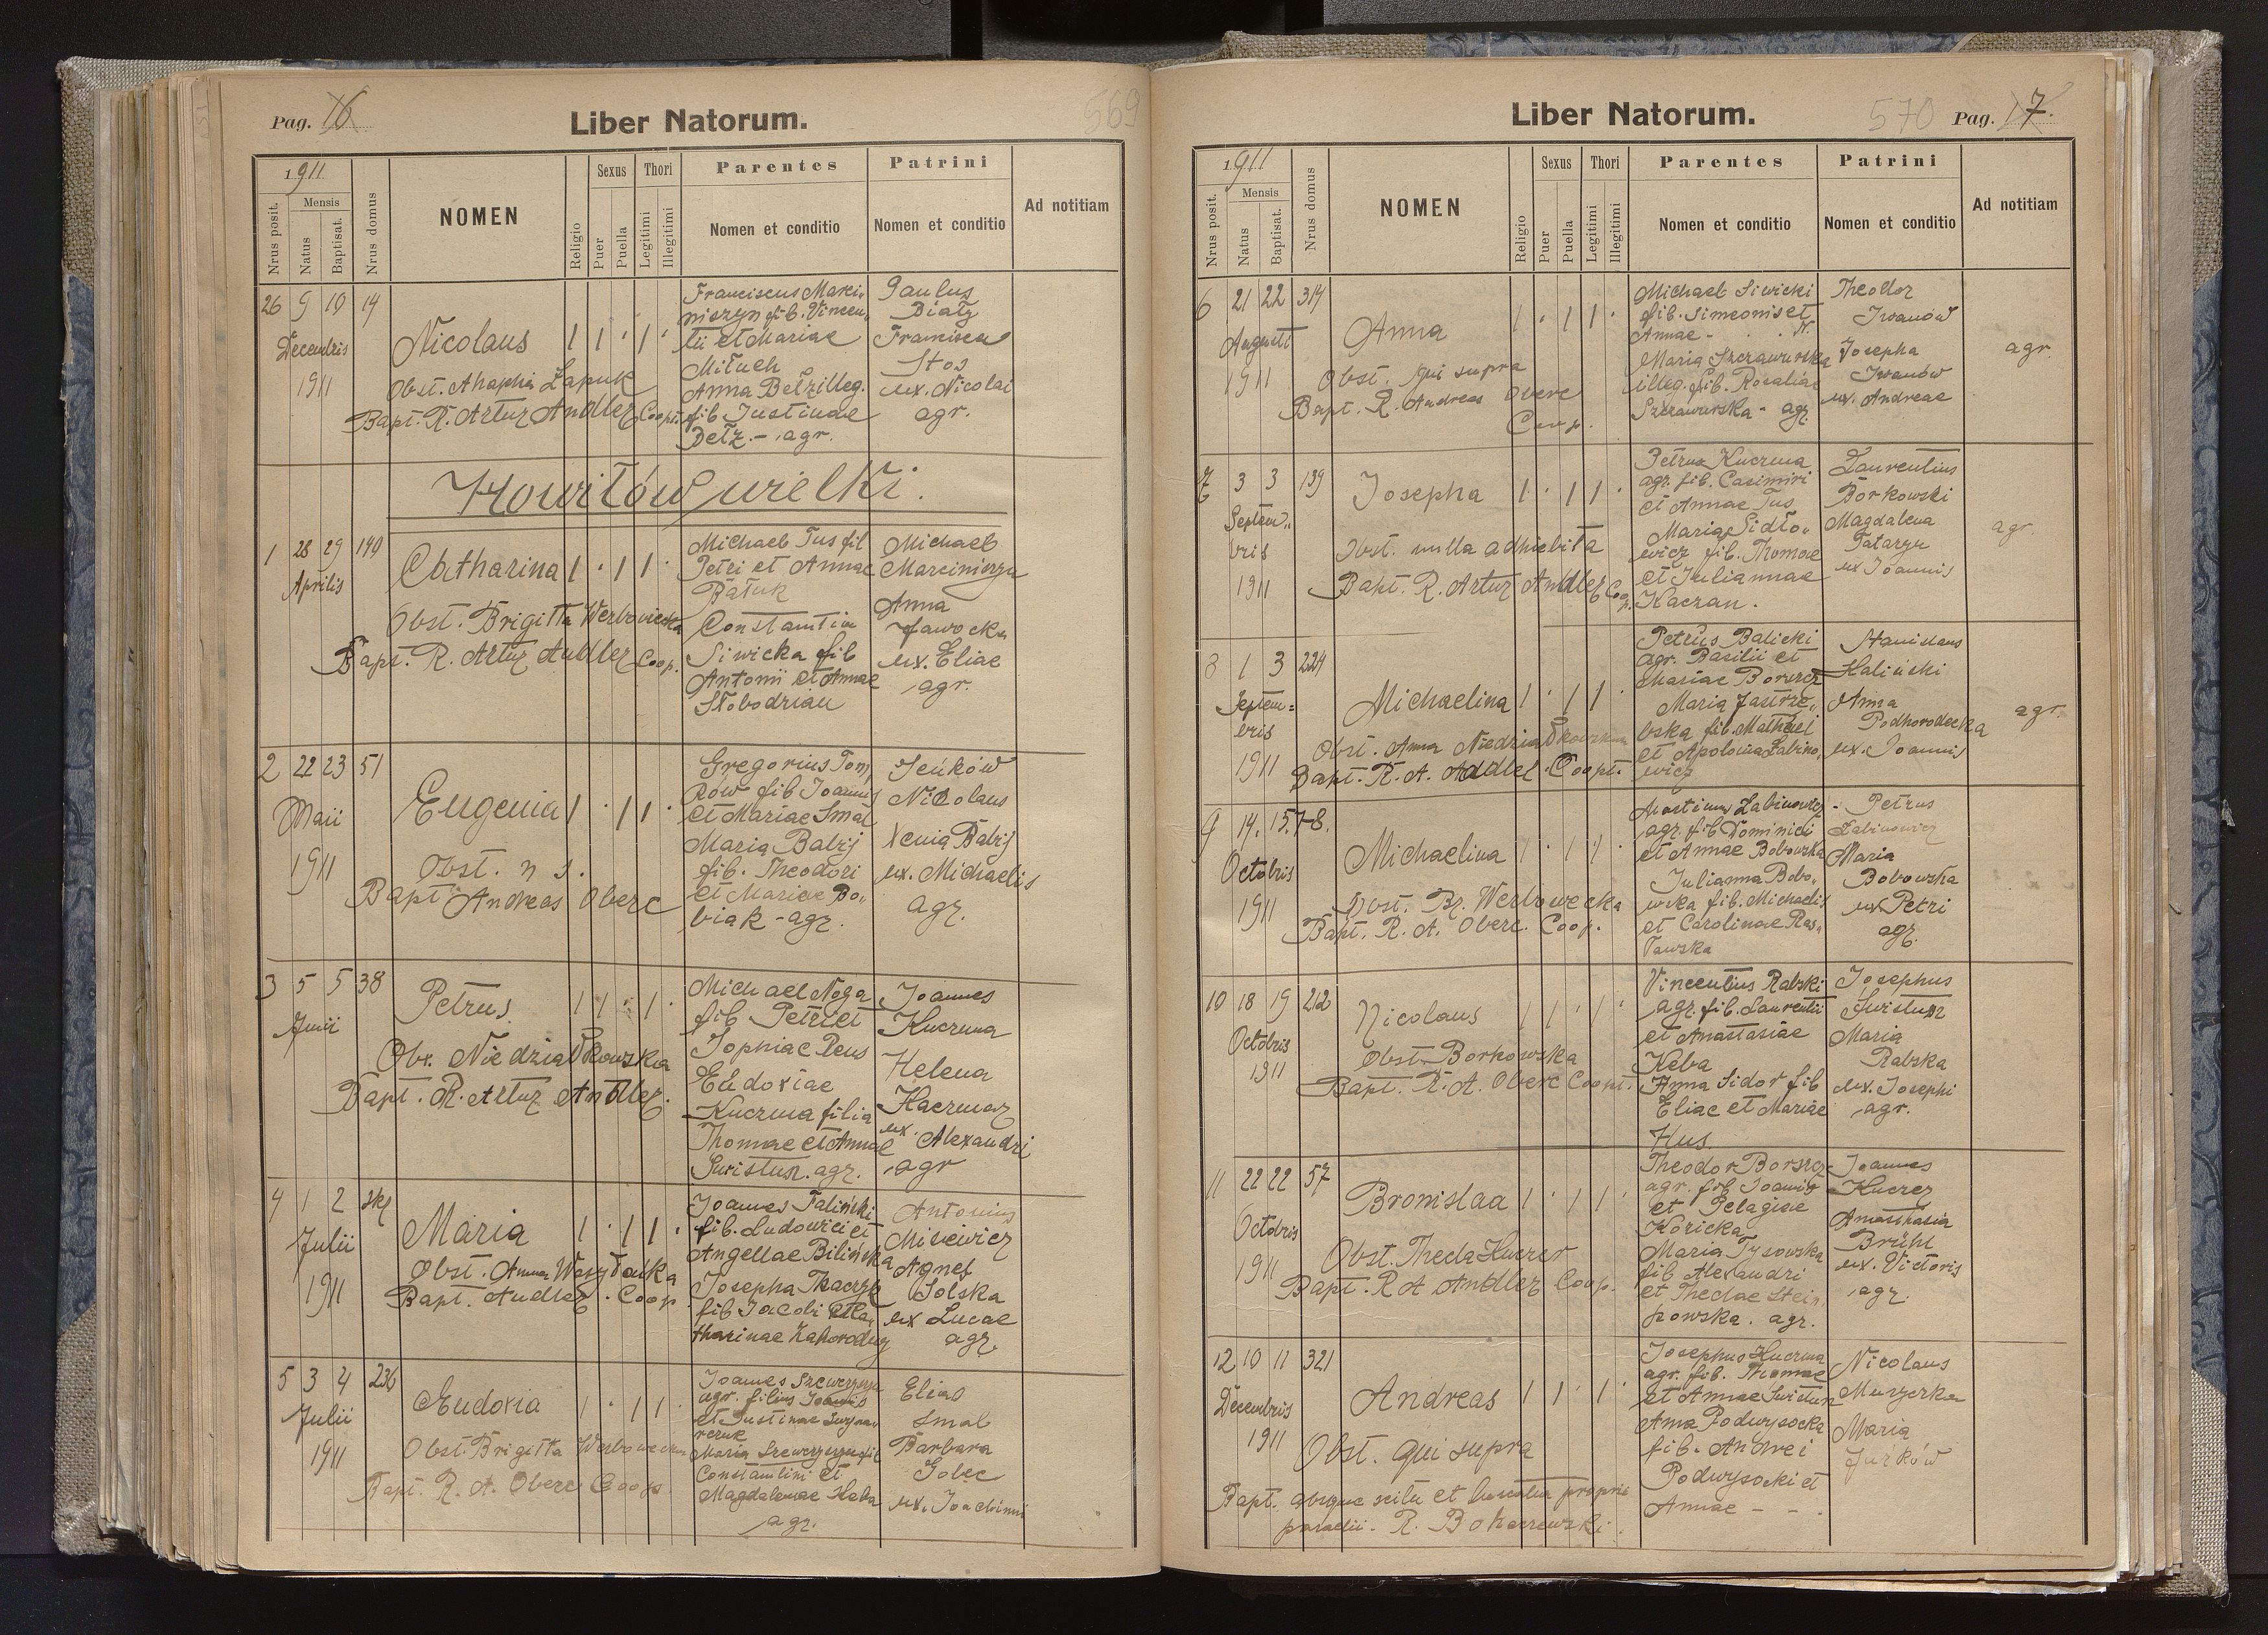 Pag. 16
Liber Natorum.
569
1911
Nrus posit.
Mensis
Natus
Baptisat.
Nrus domus
NOMEN
Religio
Sexus
Puer
Puella
Thori
Legitimi
Illegitimi
Parentes
Nomen et conditio
Patrini
Nomen et conditio
Ad notitiam
26 9 10 14
Decembris
1911
Nicolaus
Obst. Ahaphia Łapuk
Bapt. R. Artur Andler Coop.
Franciscus Marci-
niszyn fil. Vincen-
tii et Mariae
Miluch
Anna Bełz illeg.
fil. Justinae
Bełz. - agr.
Paulus
Biały
Francisca
Stos
ux. Nicolai
agr.
Howiłów wielki.
1 28 29 140
Aprilis
Catharina
Obst. Brigitta Werbowiecka
Bapt. R. Artur Andler Coop.
Michael Tus fil
Petri et Annae
Batuk
Constantia
Siwicka fil
Antonii et Annae
Słobodzian
Michael
Marciniszyn
Anna
Jawocka
ux. Eliae
agr.
2 22 23 51
Maii
1911
Eugenia
Obst. n s.
Bapt Andreas Oberc
Gregorius Tom
ków fil Joannis
et Mariae Smal
Maria Babij
fil. Theodori
et Mariae Bo-
biak - agr.
Jeńków
Nicolaus
Xenia Babij
ux. Michaelis
agr.
3 5 5 38
Junii
Petrus
Obst. Niedziałkowska
Bapt. R. Artur Andler
Michael Noga
fil Petri et
Sophiae Peus
Eudoxiae
Kuczma filia
Thomae et Annae
Swistun. agr.
Joannes
Kuczma
Helena
Kaczmar
ux. Alexandri
agr
4 1 2
Julii
1911
Maria
Obst. Anna Wasylańka
Bapt. Andler. Coop
Joannes Taliński
fil. Ludovici et
Angellae Bilińska
Josepha Tkaczyk
fil Jacobi et Ka-
tharinae Zahorodny
Antonius
Misiewicz
Agnes
Solska
ux Lucae
agr
5 3 4 236
Julii
1911
Eudoxia
Obst. Brigitta
Bapt. R. A. Oberc Coop.
Joannes
agr. filius Joannis
et Justinae
Maria
Constantini et
Magdalenae
agr.
Elias
Smal
Barbara
Golec
ux. Joachimi
Liber Natorum.
570
Pag. 17.
1911
Nrus posit.
Mensis
Natus
Baptisat.
Nrus domus
NOMEN
Religio
Sexus
Puer
Puella
Thori
Legitimi
Illegitimi
Parentes
Nomen et conditio
Patrini
Nomen et conditio
Ad notitiam
6 21 22 314
Augusti
1911
Anna
Obst. qui supra
Bapt. R. Andreas Oberc
Coop.
Michael Siwicki
fil. Simeonis et
Annae - N.
Maria Szczawurska
illeg. fil. Rosaliae
Szczawurska - agr.
Theodor
Iwanów
Josepha
Iwanów
ux. Andreae
agr.
7 3 3 139
Septem-
bris
1911
Josepha
Obst. nulla adhibita
Bapt. R. Artur Andler Coop.
Petrus Kuczma
agr. fil. Casimiri
et Annae Tus
Maria Sidło-
wicz fil. Thomae
et Juliannae
Kaczan.
Laurentius
Borkowski
Magdalena
Tataryn
ux Joannis
agr.
8 1 3 224
Septem-
bris
1911
Michaelina
Obst. Anna Niedziałkowska
Bapt. R. A. Andler. Coopt.
Petrus Balicki
agr. Basilii et
Mariae Borszcz
Maria Jastrzę-
bska fil. Mathaei
et Apolonia Labino-
wicz
Stanislaus
Haliński
Anna
Podhorodecka
ux. Joannis
agr.
9 14. 15. 78.
Octobris
1911
Michaelina
Obst. Br. Werbowecka
Bapt. R. A. Oberc. Coop.
Martinus Labinowicz
agr. fil Dominici
et Annae Bobowska
Julianna Bobo-
wska fil. Michaelis
et Carolinae Ras-
ławska
Petrus
Labinowicz
Maria
Bobowska
ux Petri
agr.
10 18 19 212
Octobris
1911
Nicolaus
Obst. Borkowska
Bapt. R. A. Oberc Coopt.
Vincentius Rabski
agr. fil. Laurentii
et Anastasiae
Keba
Anna Sidor fil
Eliae et Mariae
Hus
Josephus
Swistun
Maria
Rabska
ux. Josephi
agr.
11 22 22 57
Octobris
1911
Bronislaa
Obst. Thecla Kuczer
Bapt. R A Andler Coop.
Theodor Borszcz
agr. fil Joannis
et Pelagiae
Koricka
Maria Tysowska
fil Alexandri
et Theclae Stein-
powska. agr.
Joannes
Kuczer
Anasthasia
Brühl
ux. Victoris
agr.
12 10 11 321
Decembris
1911
Andreas
Obst. qui supra
Bapt. absque scitu et licentia proprii
parochi. R. Bohaczewski.
Josephus Kuczma
agr. fil. Thomae
et Annae Swistun
Anna Podwysocka
fil. Andrei
Podwysocki et
Annae - -
Nicolaus
Murzerka
Maria
Jurków